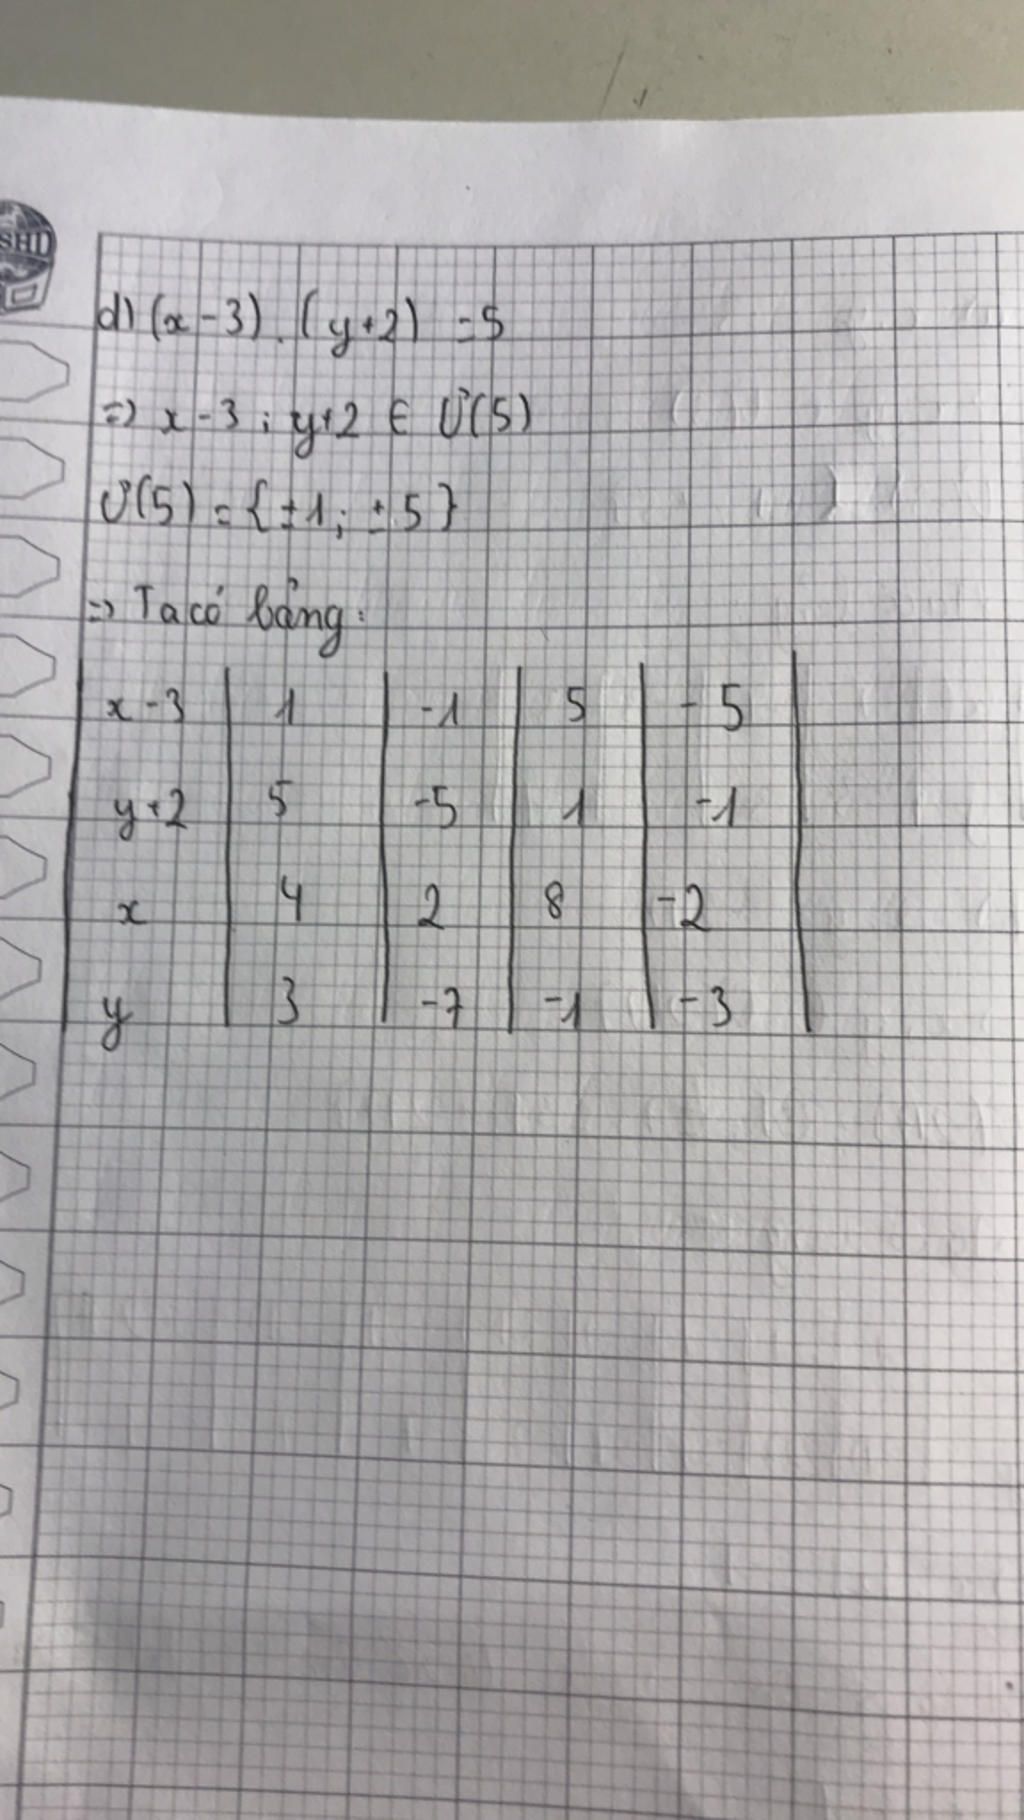 SHI
d) (x-3).(y+2) = 5
=> x-3; y+2 ∈ Ư(5)
Ư(5) = {±1; ±5}
=> Ta có bảng:
x-3 | 1 | -1 | 5 | -5
y+2 | 5 | -5 | 1 | -1
x | 4 | 2 | 8 | -2
y | 3 | -7 | -1 | -3